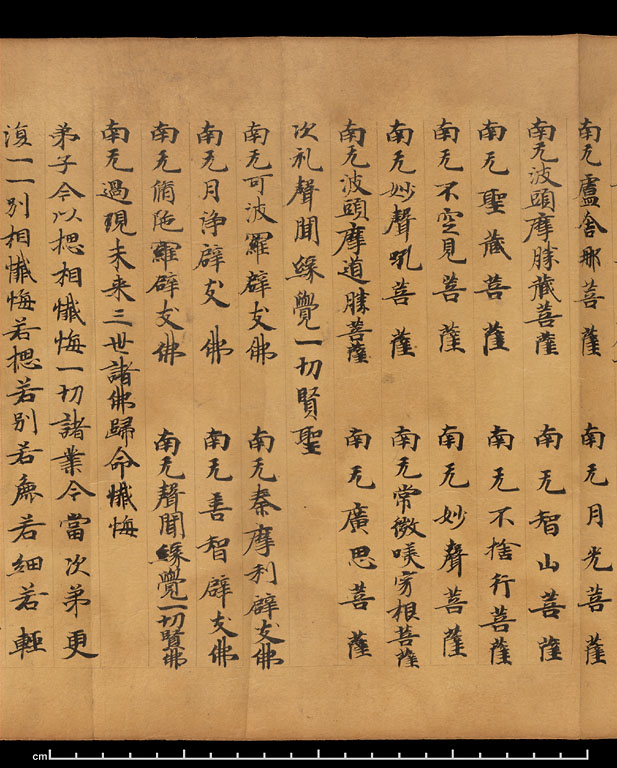 南无盧舍那菩薩 南无月光菩薩
南无波頭摩勝藏菩薩 南无智山菩薩
南无聖藏菩薩 南无不捨行菩薩
南无不空見菩薩 南无妙聲菩薩
南无妙聲吼菩薩 南无常微咲寂根菩薩
南无波頭摩道勝菩薩 南无廣思菩薩
次礼聲聞緣覺一切賢聖
南无可波羅辟支佛 南无秦摩利辟支佛
南无月淨辟支佛 南无善智辟支佛
南无脩陁羅辟支佛 南无聲聞緣覺一切賢佛
南无過現未来三世諸佛歸命懺悔
弟子今以揔相懺悔一切諸業今當次弟更
復一一別相懺悔若揔若別若麁若細若輕